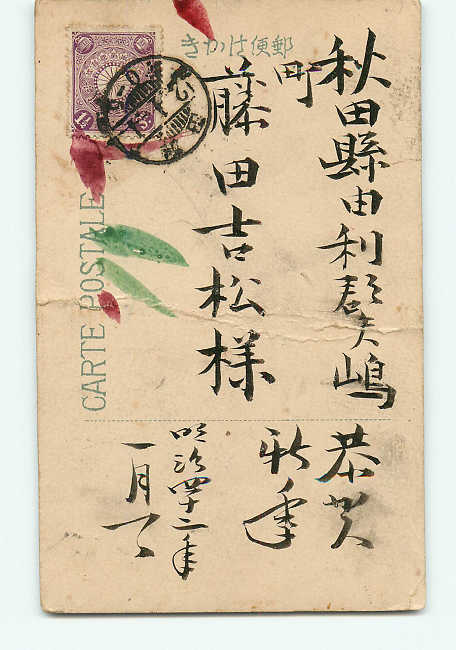 郵便はかき
CARTE POSTALE
秋田縣由利郡矢嶋
町
藤田吉松様
恭賀
新年
明治四十二年
一月